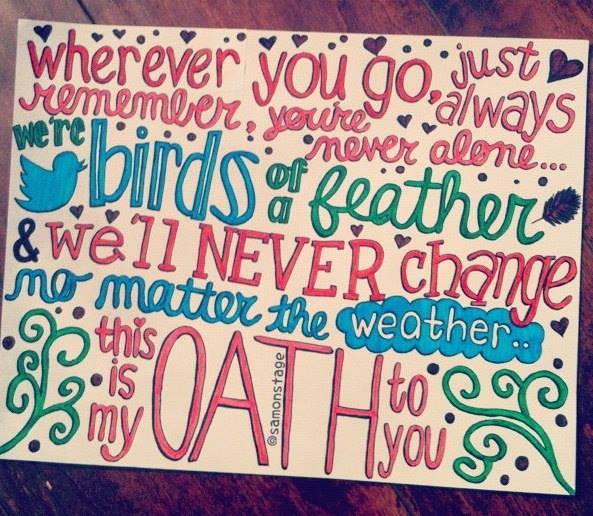 wherever you go, just
always
remember, you're
never alone...
we're birds of a feather
& we'll NEVER change
no matter the weather..
this is my OATH to you
@samonstage